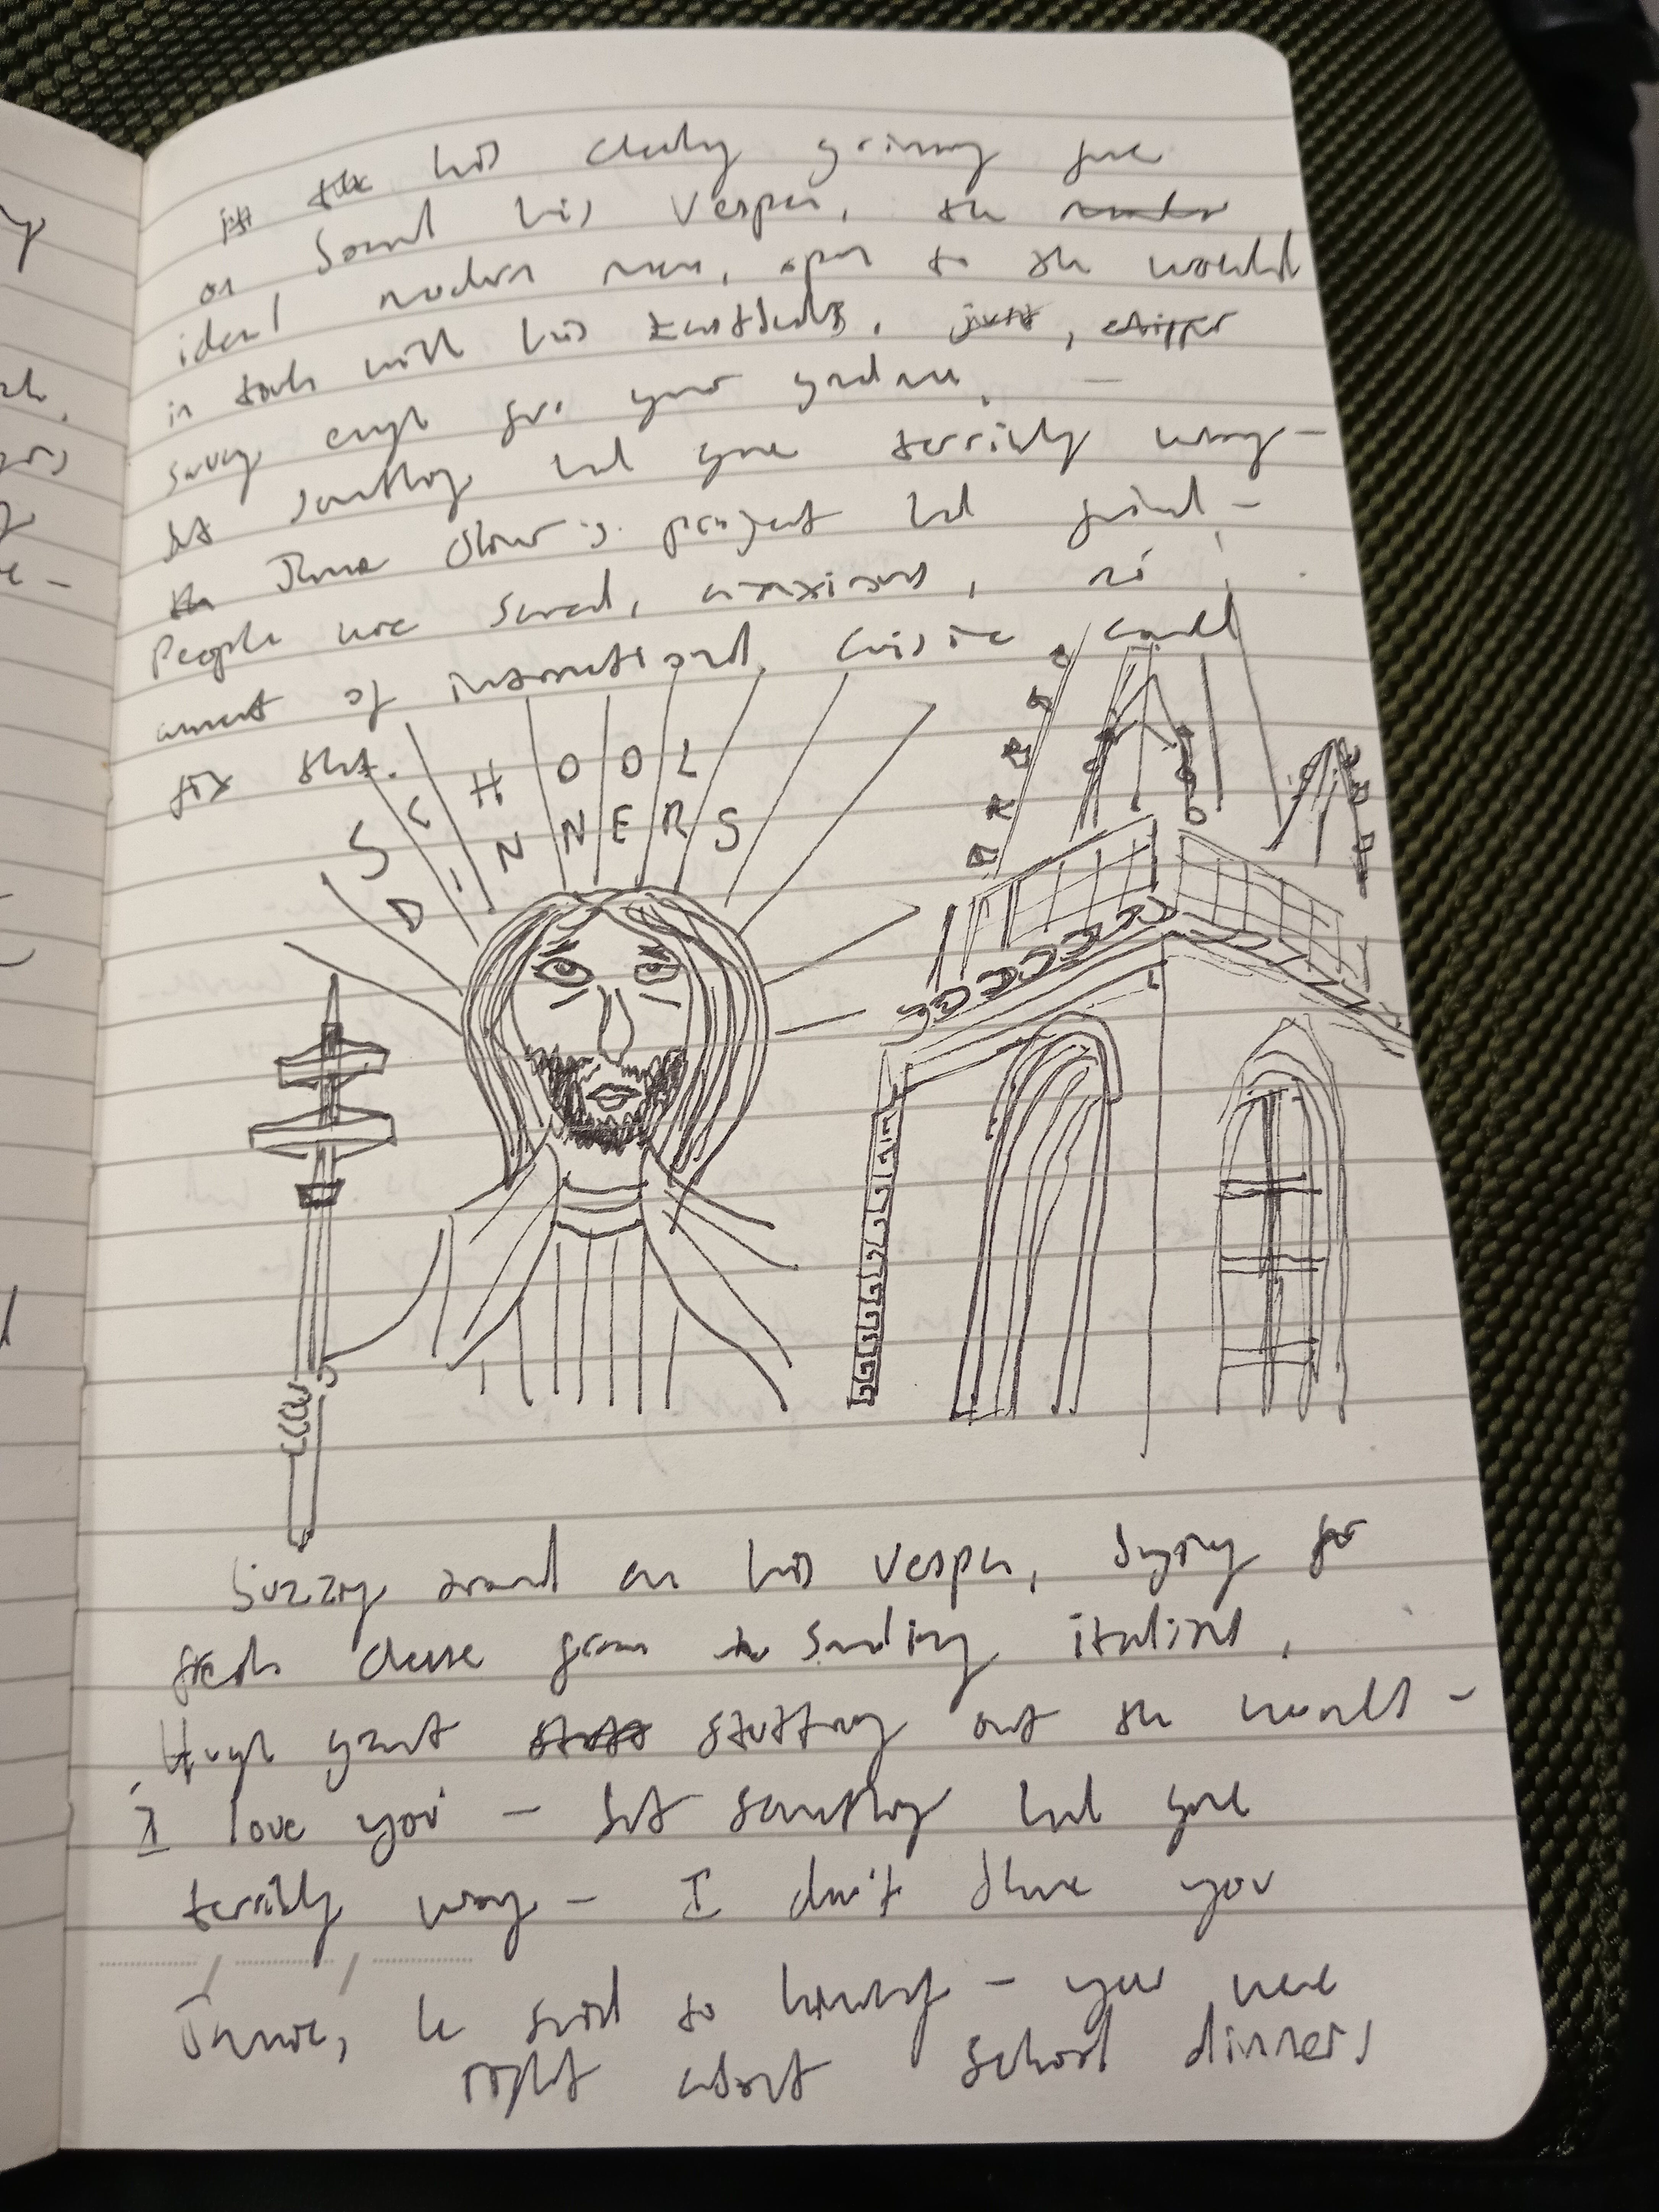 his cheeky grinny face
on board his Vespa, the
ideal modern man, open to the world
in touch with his tastebuds,
savvy enough for your grandma, –
but something had gone terribly wrong –
Jamie Oliver's project had failed –
People were scared, anxious, no
amount of international cuisine could
fix that.
SCHOOL
DINNERS
buzzing around on his Vespa, begging for
fresh cheese from smiling italians,
Hugh grant stuttering out the words –
'I love you' – but something had gone
terribly wrong – I don't blame you
Jamie, he said to himself – you were
right about school dinners